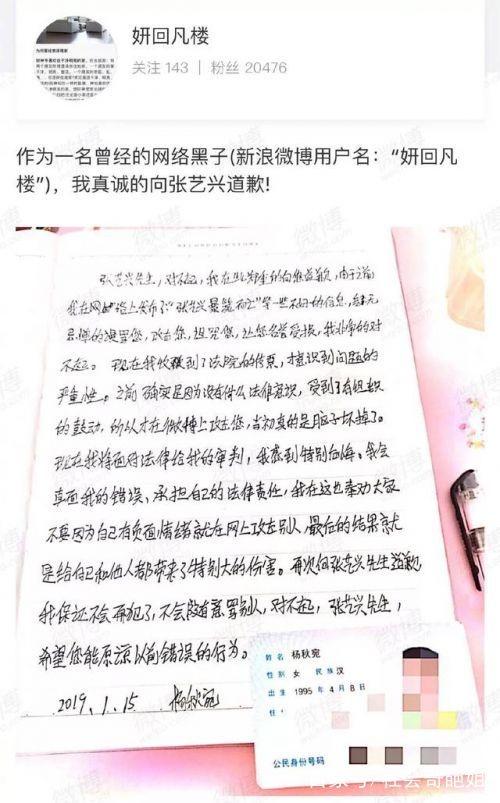 妍回凡楼
关注 143 | 粉丝 20476
作为一名曾经的网络黑子(新浪微博用户名：“妍回凡
楼”)，我真诚的向张艺兴道歉!
张艺兴先生，对不起，我在此郑重的向您道歉，由于之前
我在网络上发布了"张艺兴
的信息，毫无
您，攻击您，诅咒您，让您名誉受损，我非常的对
不起。现在我收到了法院的传票，才意识到问题的
严重性。之前确实是因为没有什么法律意识，受到了有组织
的鼓动，所以才在微博上攻击您，当初真的是脑子坏掉了。
现在我将面对法律给我的审判，我感到特别后悔。我会
直面我的错误、承担自己的法律责任，我在这也奉劝大家
不要因为自己有负面情绪就在网上攻击别人，最后的结果就
是给自己和他人都带来了特别大的伤害。再次向张艺兴先生道歉
我保证不会再犯了，不会随意辱骂别人，对不起，张艺兴先生，
希望您能原谅以前错误的行为。
2019.1.15 杨秋宛
姓名 杨秋宛
性别 女 民族 汉
出生 1995 年 4 月 8 日
公民身份号码